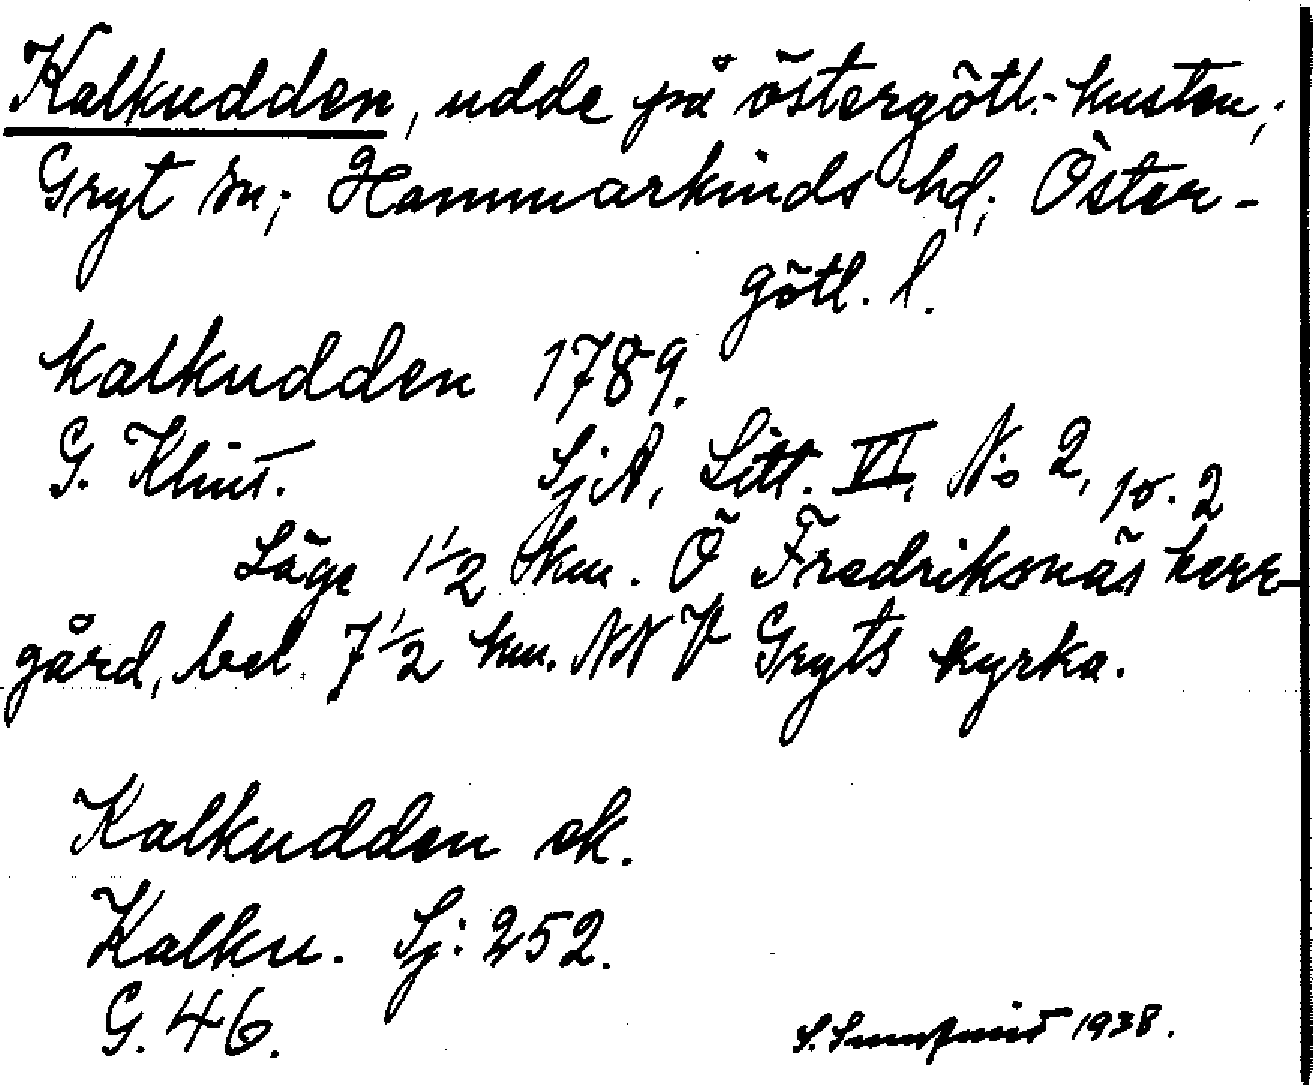 Kalkudden, udde på östergötl.-kusten;
Gryt sn; Hammarkinds hd; Öster-
götl. l.
Kalkudden 1789.
G. Klint. SjA, Litt. VI, No 2, pr. 2
Läge 1 1/2 km. Ö Fredriksnäs herr-
gård, bel. 7 1/2 km. NNV Gryts kyrka.
Kalkudden ek.
Kalku. Sj: 252.
G. 46.
S. 1938.